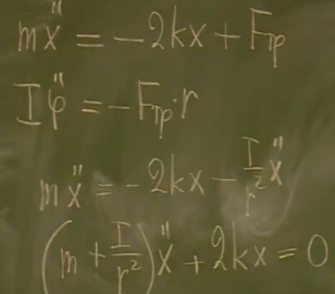 mẍ = -2kx + Fтр
Iφ̈ = -Fтр·r
mẍ = -2kx - I/r² ẍ
(m + I/r²)ẍ + 2kx = 0